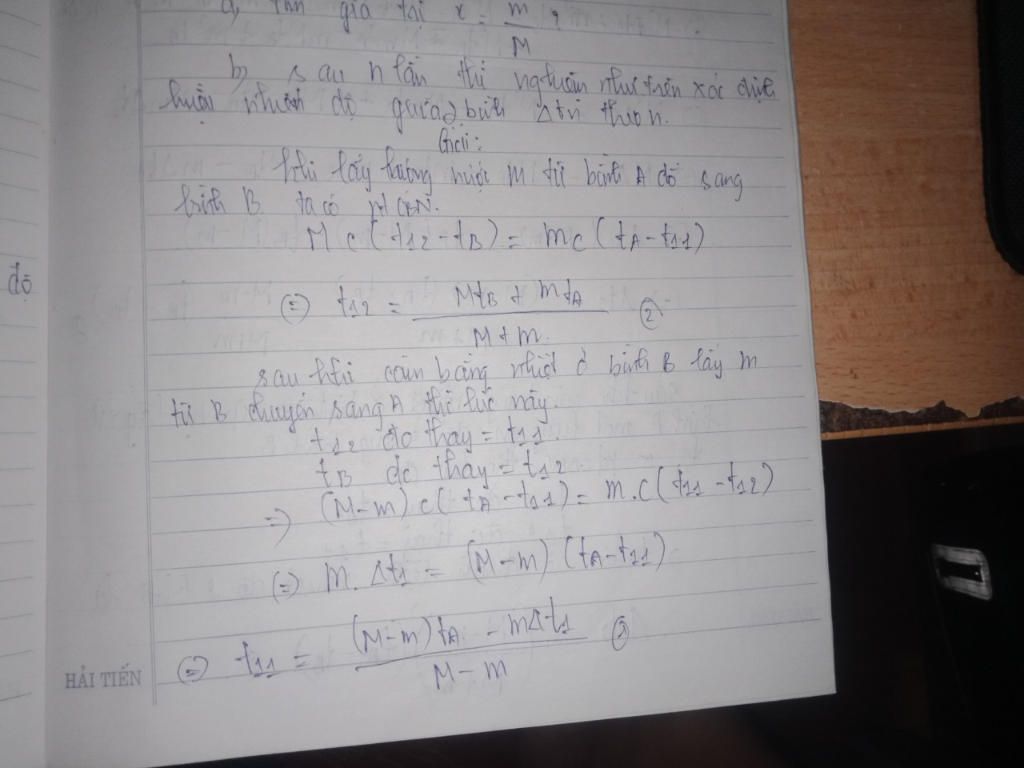 a, giá tại x = m/M ?
b, sau n lần thí nghiệm như trên xác định
nhiệt độ giữa 2 bình Δtn theo n.
Giải:
khi lấy lượng nước m từ bình A đổ sang
bình B ta có pt CBN.
Mc(t12 - tB) = mc(tA - t11)
(=) t12 = (MtB + mtA)/(M + m) (2)
sau khi cân bằng nhiệt ở bình B lấy m
từ B chuyển sang A thì lúc này.
t12 đc thay = t11.
tB đc thay = t12
=) (M-m)c(tA - t11) = m.c(t11 - t12)
(=) m.Δt1 = (M-m)(tA - t11)
(=) t11 = ((M-m)tA - mΔt1)/(M - m) (3)
độ
HẢI TIẾN